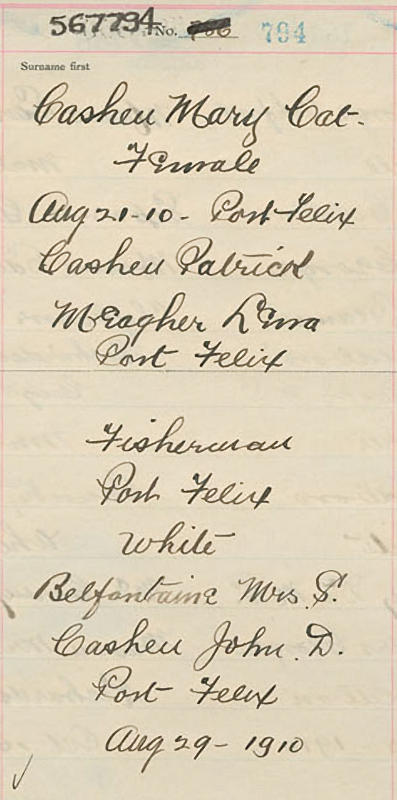 567794 No. 794
Surname first
Casheu Mary Cat.
Female
Aug 21-10 - Port Felix
Casheu Patrick
Meagher Lena
Port Felix
Fisherman
Port Felix
White
Belfontaine Mrs. S.
Casheu John. D.
Port Felix
Aug 29 - 1910